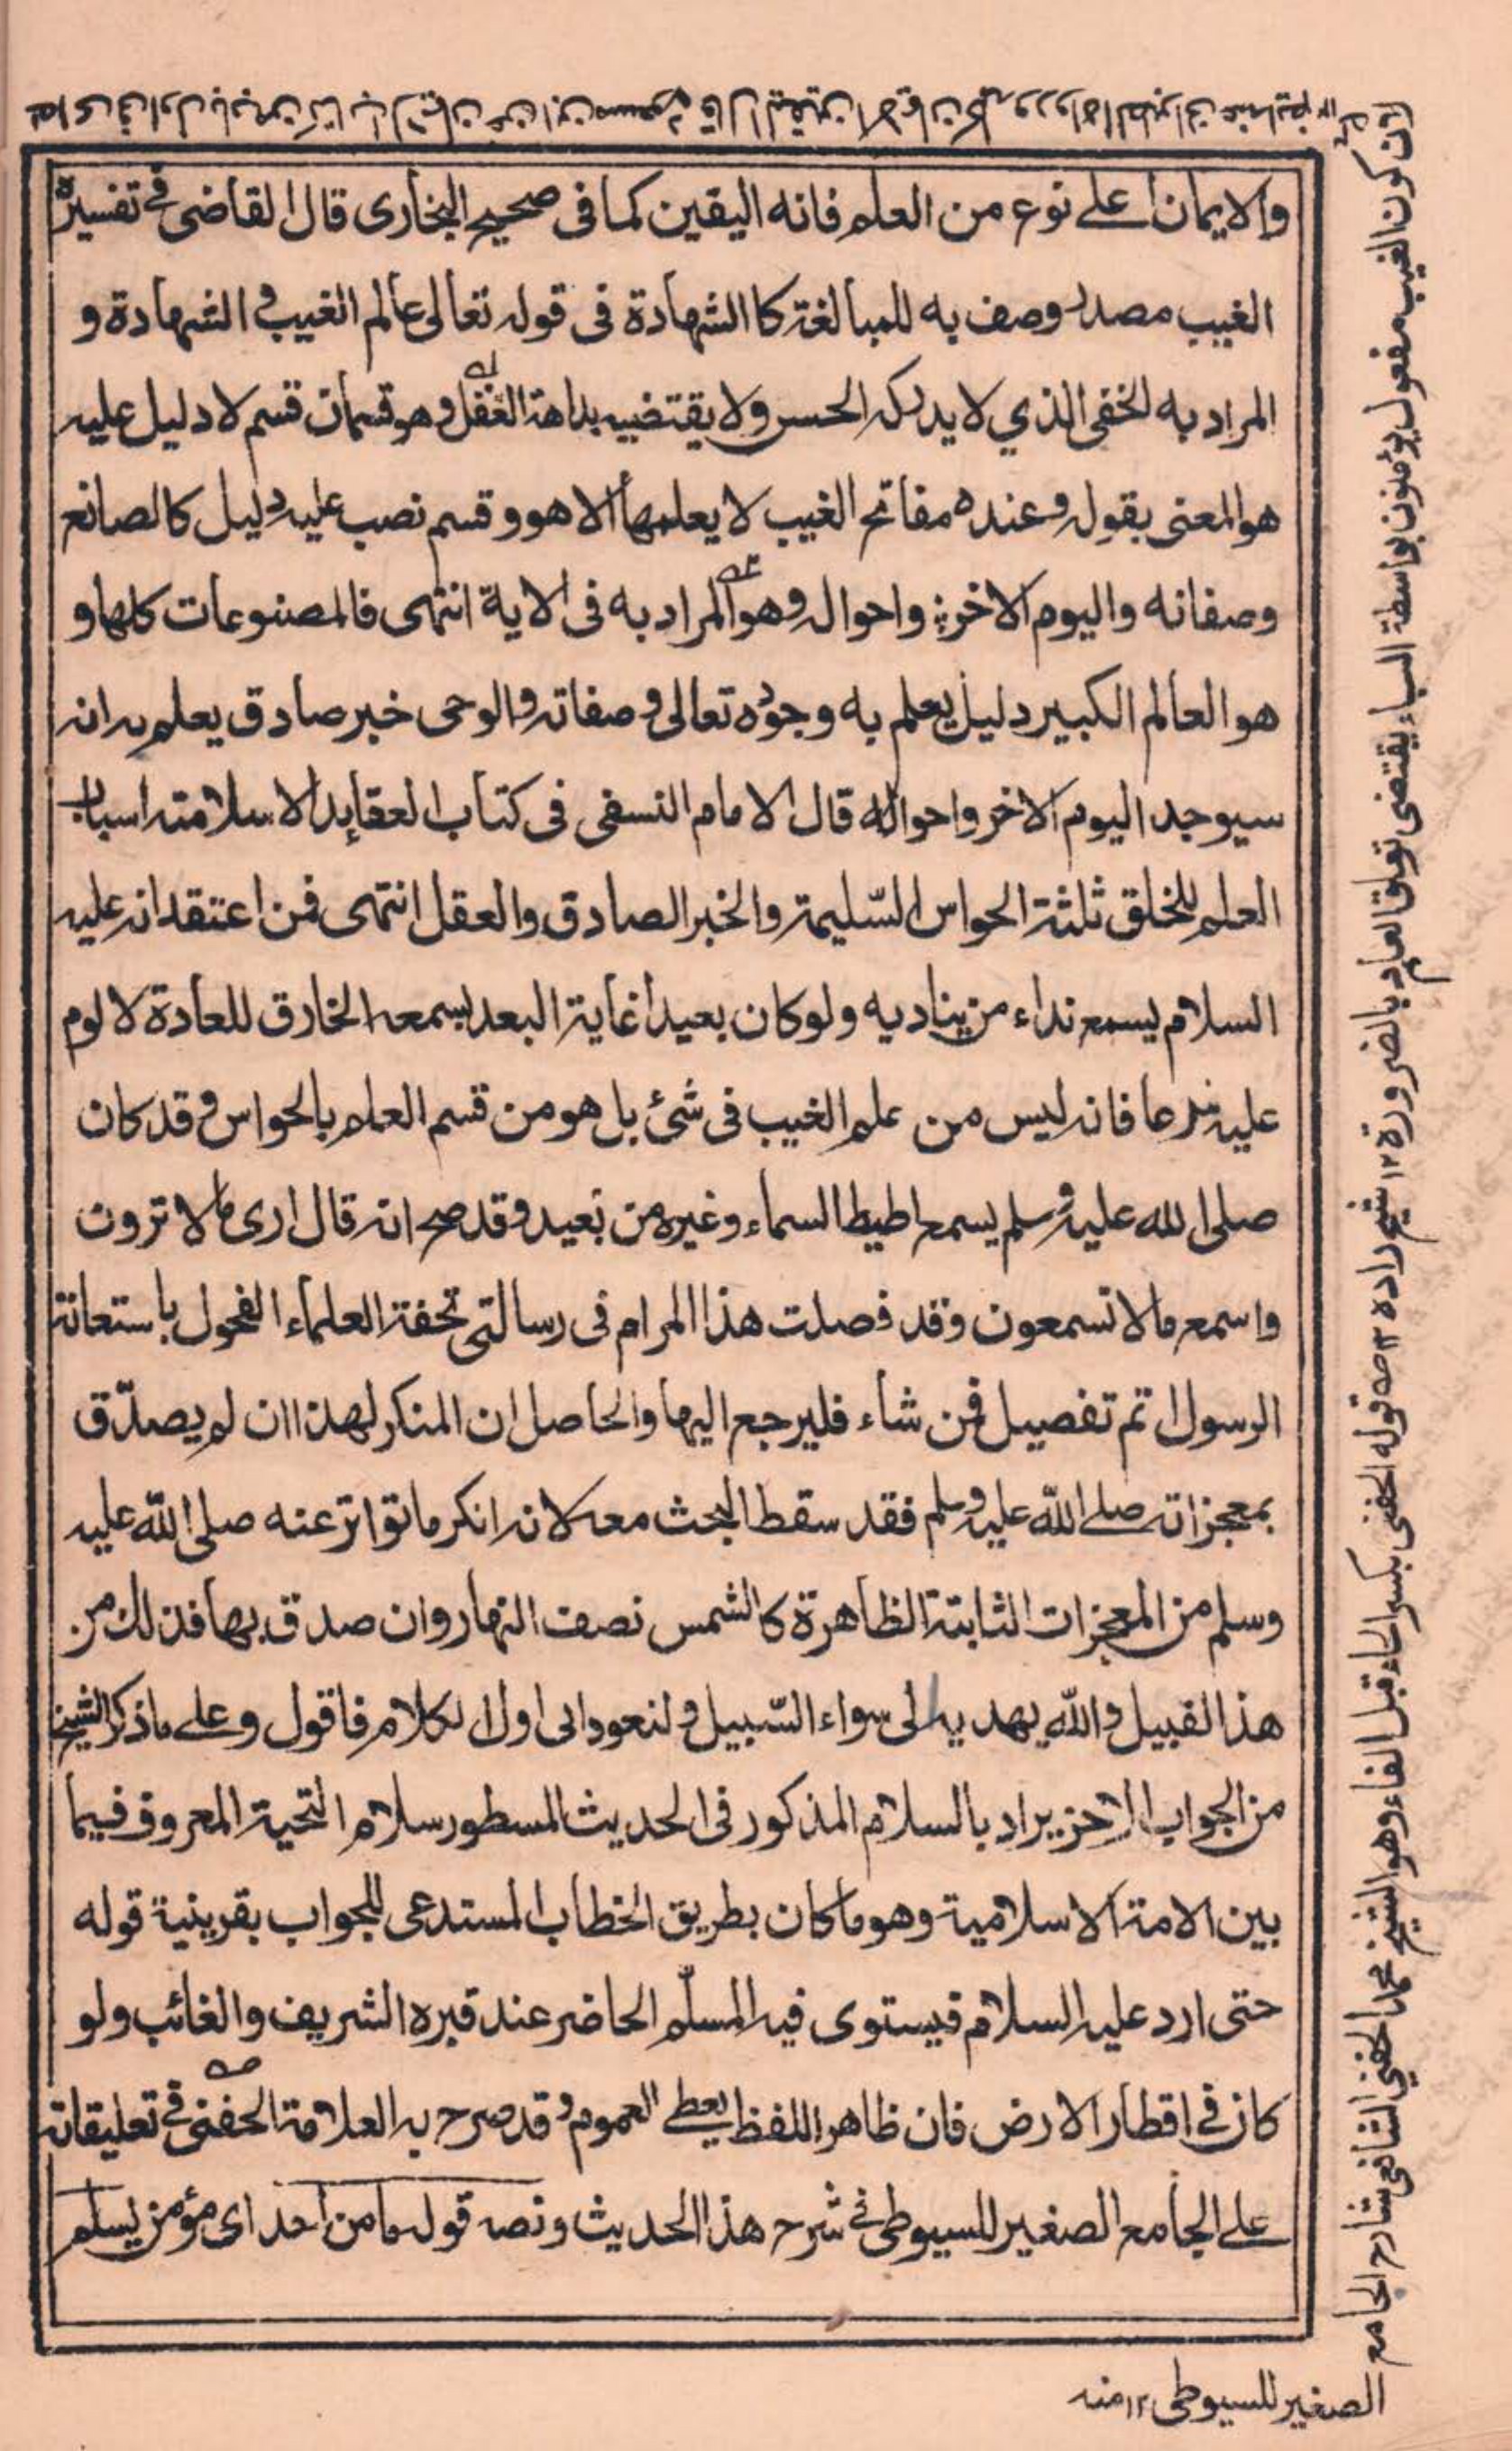 والايمان اعلے نوع من العلم فانه اليقين كما فى صحيح البخارى قال القاضى فے تفسيره
الغيب مصدر وصف به للمبالغة كا الشهادة فى قوله تعالى عالم الغيب و الشهادة و
المراد به الخفى الذي لا يدركه الحس ولا يقتضيه بداهة العقل و هو قسمان قسم لا دليل عليه
هو المعنى بقوله وعنده مفاتح الغيب لا يعلمها الا هو و قسم نصب عليه دليل كالصانع
وصفاته واليوم الاخر واحواله وهو المراد به فى الاية انتهى فالمصنوعات كلها و
هو العالم الكبير دليل يعلم به وجوده تعالى و صفاته والوحى خبر صادق يعلم به انه
سيوجد اليوم الاخر واحواله قال الامام النسفى فى كتاب العقايد الاسلامية اسباب
العلم للخلق ثلثة الحواس السّليمة والخبر الصادق والعقل انتهى فمن اعتقد انه عليه
السلام يسمع نداء من يناديه ولو كان بعيدا غاية البعد بسمعه الخارق للعادة لا لوم
عليه شرعا فانه ليس من علم الغيب فى شئ بل هو من قسم العلم بالحواس و قد كان
صلى الله عليه وسلم يسمع اطيط السماء وغيره من بعيد وقد صح انه قال ارى ما لا ترون
واسمع ما لا تسمعون وقد فصلت هذا المرام فى رسالتى تحفة العلماء الفحول باستعانة
الرسول اتم تفصيل فمن شاء فليرجع اليها والحاصل ان المنكر لهذا ان لم يصدّق
بمعجزاته صلے اللّه عليه وسلم فقد سقط البحث معه لانه انكر ما تواتر عنه صلى اللّه عليه
وسلم من المعجزات الثابتة الظاهرة كالشمس نصف النهار وان صدق بها فذلك من
هذا القبيل واللّه يهديه الى سواء السّبيل و لنعود الى اول الكلام فاقول وعلے ما ذكر الشيخ
من الجواب الاخر يراد بالسلام المذكور فى الحديث المسطور سلام التحية المعروف فيما
بين الامة الاسلامية وهو ما كان بطريق الخطاب المستدعى للجواب بقرينية قوله
حتى ارد عليه السلام فيستوى فيه المسلّم الحاضر عند قبره الشريف والغائب ولو
كان فے اقطار الارض فان ظاهر اللفظ يعطے العموم و قد صرح به العلامة الحفنى فے تعليقاته
علے الجامع الصغير للسيوطى فے شرح هذا الحديث ونصه قوله ما من احد اى مؤمن يسلم
لان كون الغيب مفعول يؤمنون بواسطة الباء يقتضى تعلق العلم بالضرورة ١٢ شيخ زاده ٣ صه قوله الحفنى بكسر الحاء قبل الفاء وهو الشيخ محمد الحفنى الشافعى شارح الجامع
الصغير للسيوطى ١٢ منه